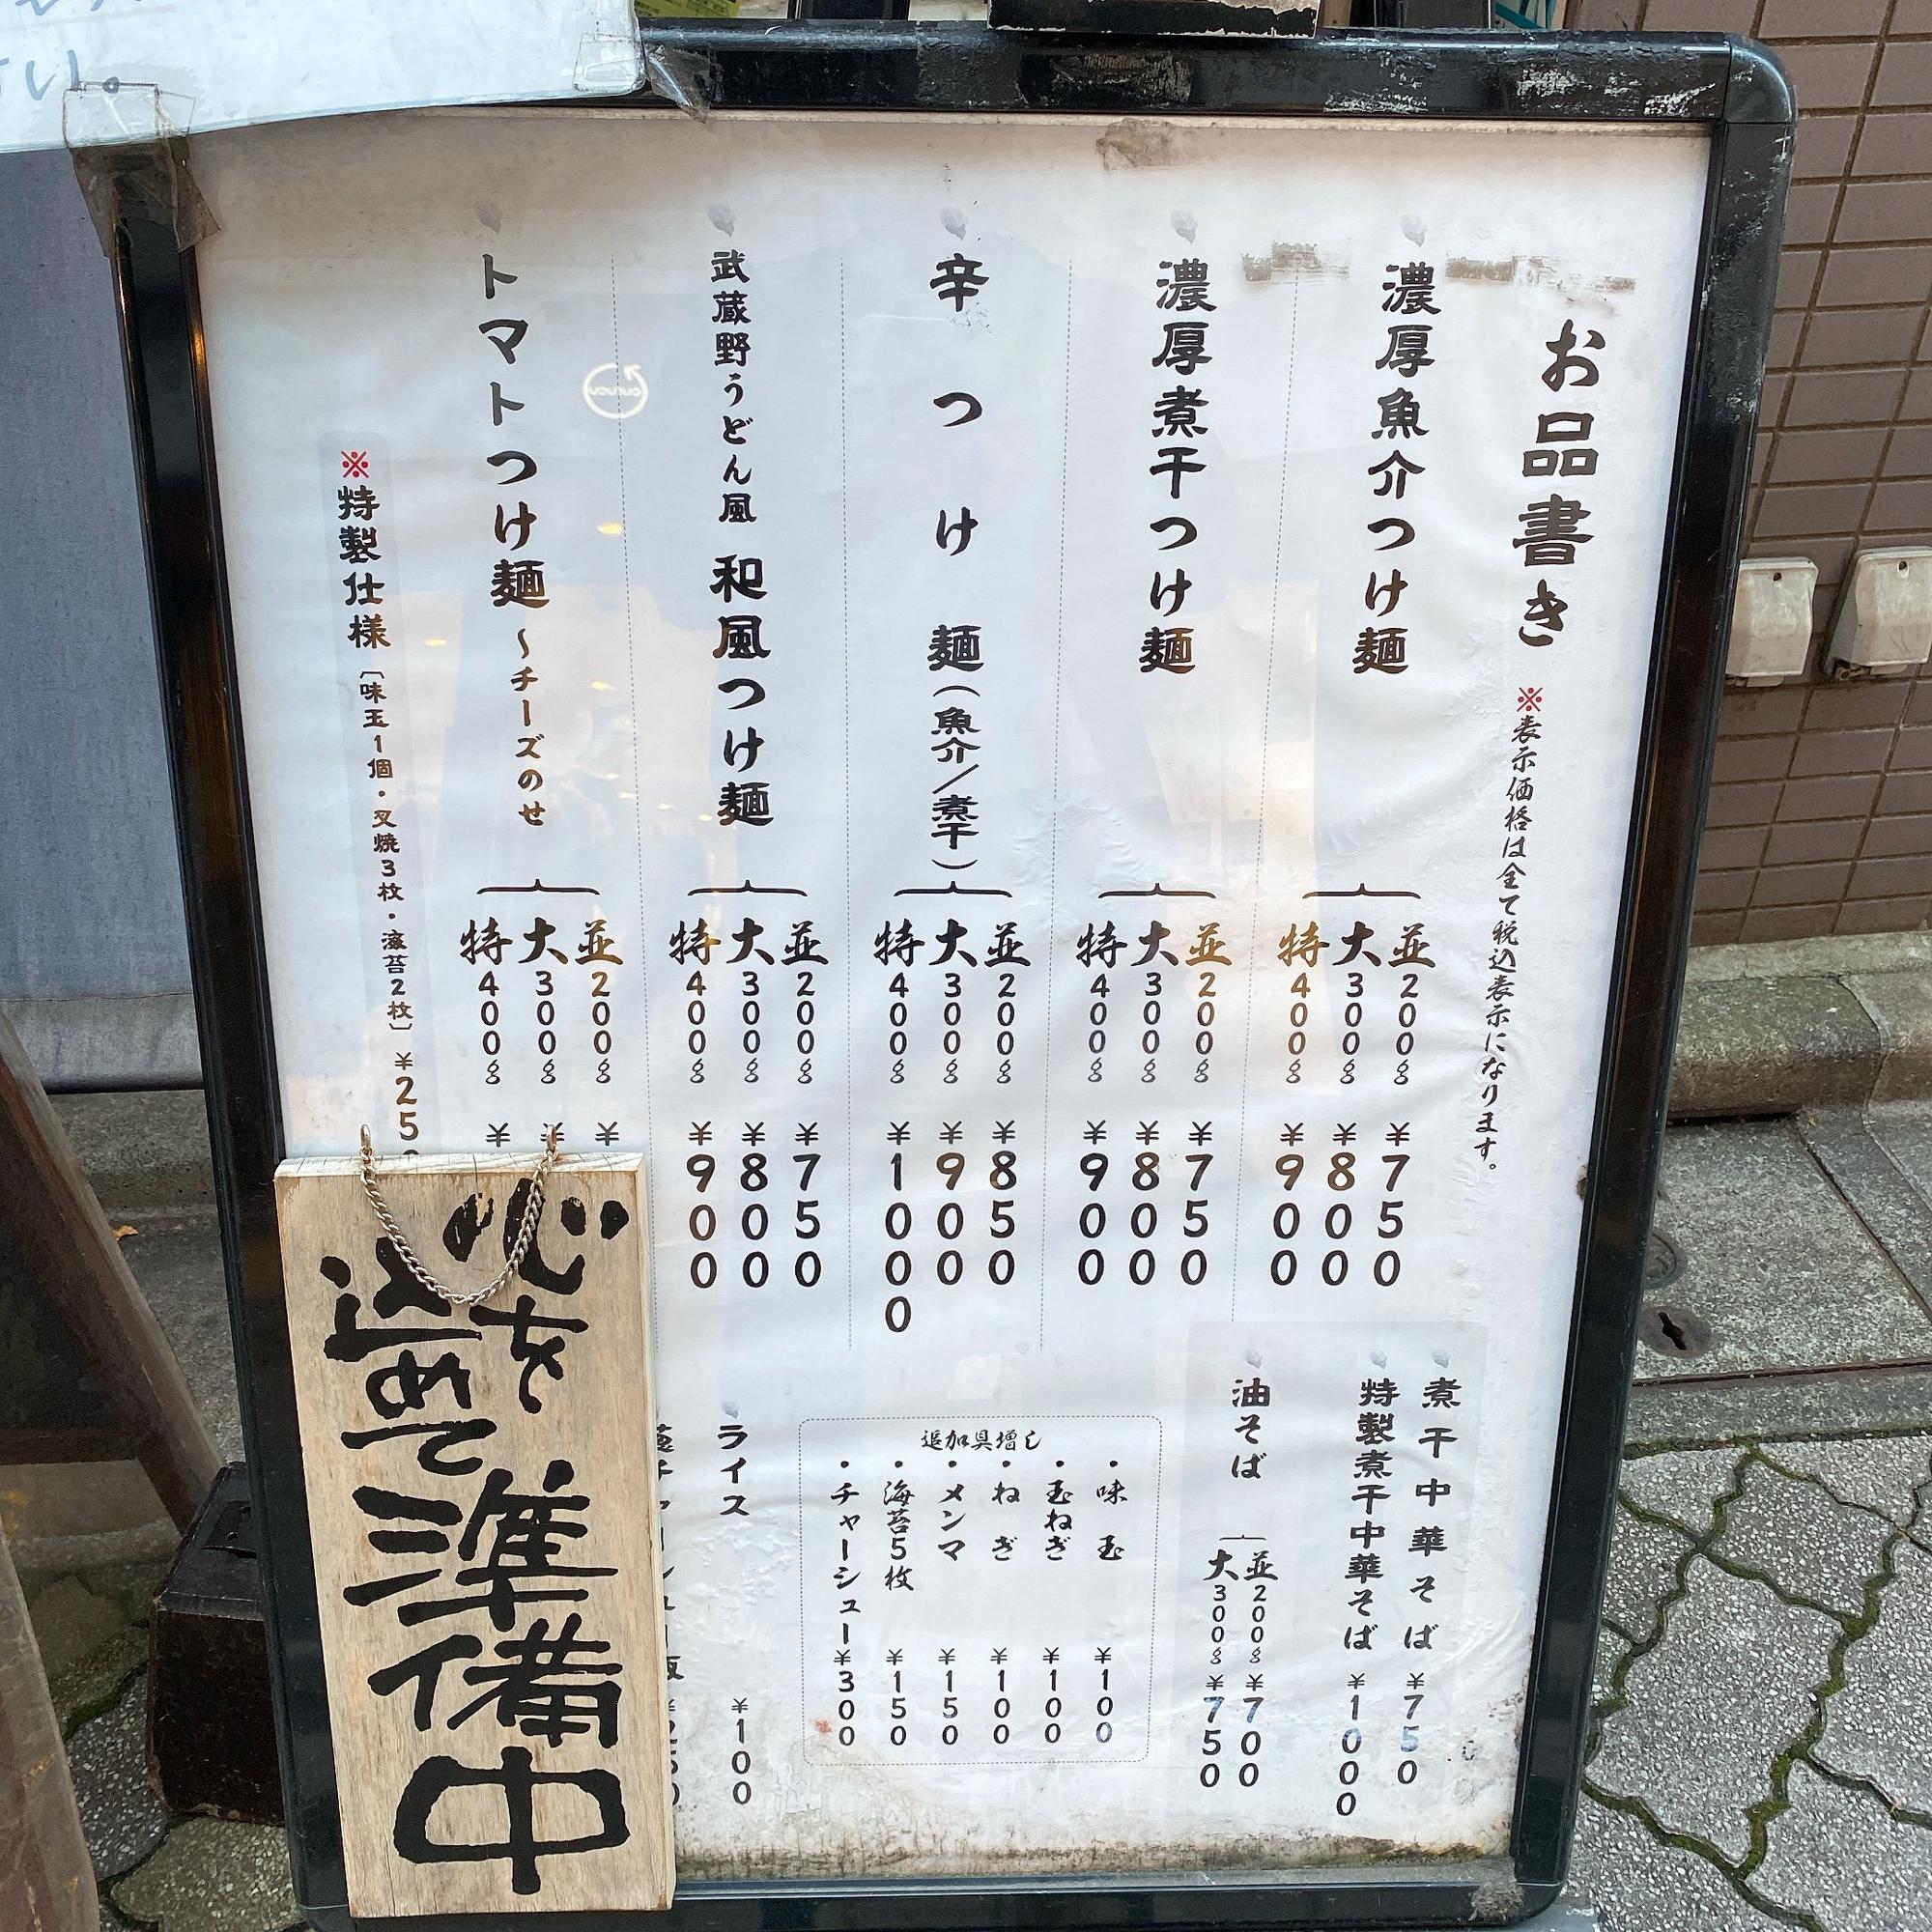 さい。
お品書き
※表示価格は全て税込表示になります。
濃厚魚介つけ麺
並200g ¥750
大300g ¥800
特400g ¥900
濃厚煮干つけ麺
並200g ¥750
大300g ¥800
特400g ¥900
辛つけ麺(魚介/煮干)
並200g ¥850
大300g ¥900
特400g ¥1000
武蔵野うどん風 和風つけ麺
並200g ¥750
大300g ¥800
特400g ¥900
トマトつけ麺 ~チーズのせ
並200g ¥
大300g ¥
特400g ¥
※特製仕様〔味玉1個・叉焼3枚・海苔2枚〕 ¥25
煮干中華そば ¥750
特製煮干中華そば ¥1000
油そば
並200g ¥700
大300g ¥750
追加具増し
・味玉 ¥100
・玉ねぎ ¥100
・ねぎ ¥100
・メンマ ¥150
・海苔5枚 ¥150
・チャーシュー ¥300
ライス ¥100
心を
込めて
準備中
curucu